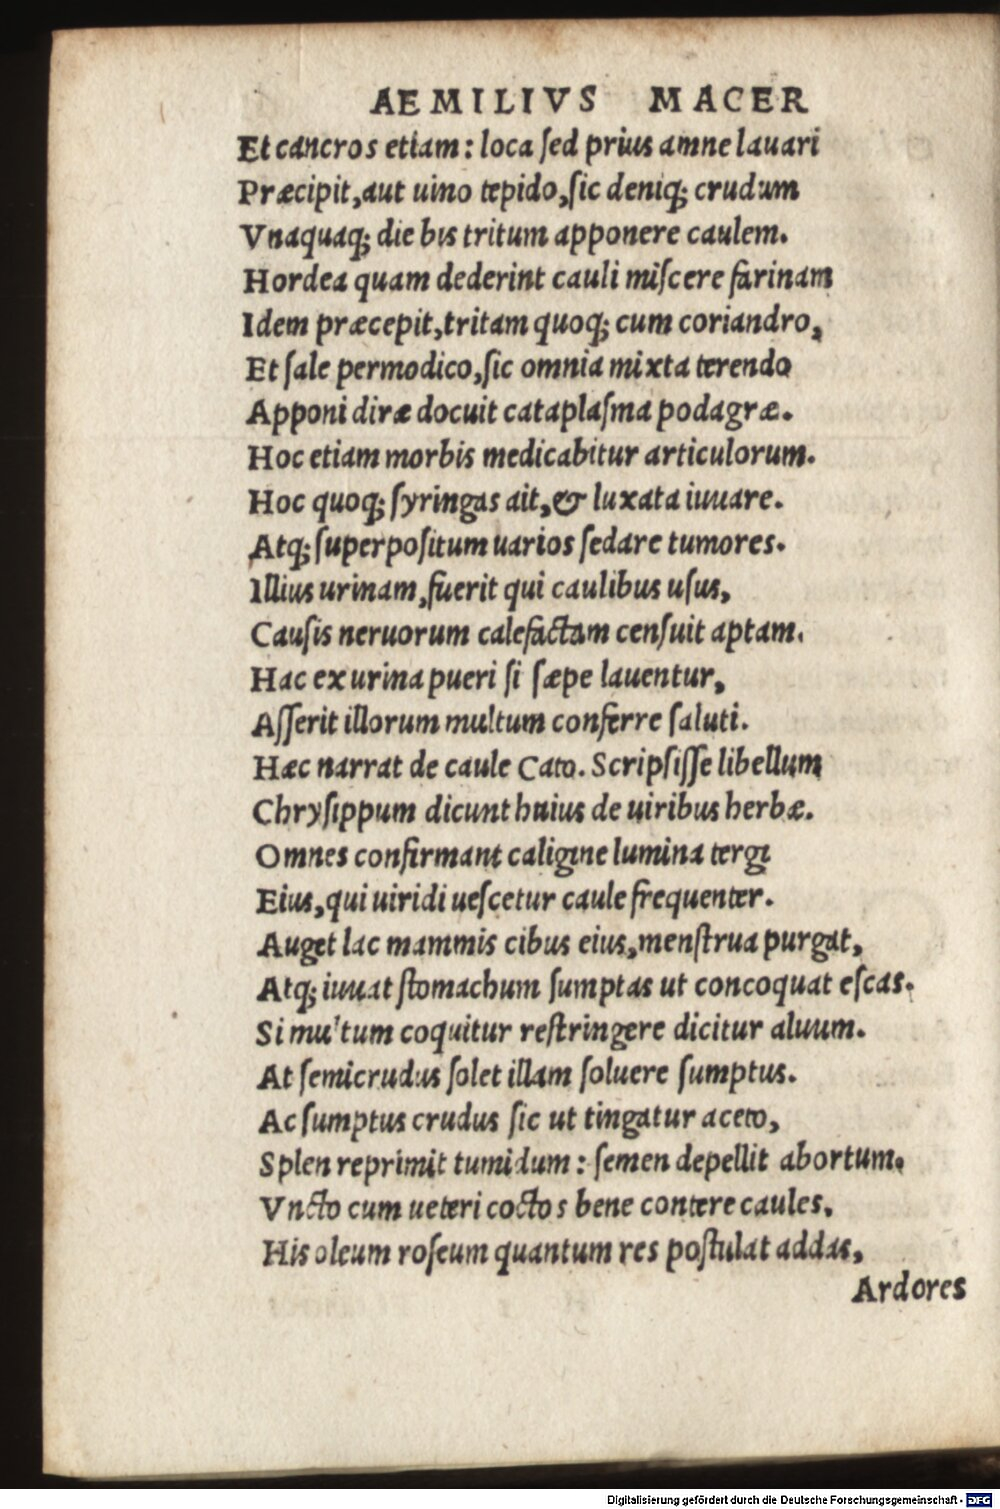 AEMILIVS MACER
Et cancros etiam: loca ſed prius amne lauari
Præcipit, aut uino tepido, ſic deniq; crudum
Vnaquaq; die bis tritum apponere caulem.
Hordea quam dederint cauli miſcere farinam
Idem præcepit, tritam quoq; cum coriandro,
Et ſale permodico, ſic omnia mixta terendo
Apponi diræ docuit cataplaſma podagræ.
Hoc etiam morbis medicabitur articulorum.
Hoc quoq; ſyringas ait, & luxata iuuare.
Atq; ſuperpoſitum uarios ſedare tumores.
Illius urinam, fuerit qui caulibus uſus,
Cauſis neruorum calefactam cenſuit aptam.
Hac ex urina pueri ſi ſæpe lauentur,
Aſſerit illorum multum conferre ſaluti.
Hæc narrat de caule Cato. Scripſiſſe libellum
Chryſippum dicunt huius de uiribus herbæ.
Omnes confirmant caligine lumina tergi
Eius, qui uiridi ueſcetur caule frequenter.
Auget lac mammis cibus eius, menſtrua purgat,
Atq; iuuat ſtomachum ſumptas ut concoquat eſcas.
Si multum coquitur reſtringere dicitur aluum.
At ſemicrudus ſolet illam ſoluere ſumptus.
Ac ſumptus crudus ſic ut tingatur aceto,
Splen reprimit tumidum: ſemen depellit abortum.
Vncto cum ueteri coctos bene contere caules,
His oleum roſeum quantum res poſtulat addas,
Ardores
Digitalisierung gefördert durch die Deutsche Forschungsgemeinschaft - DFG